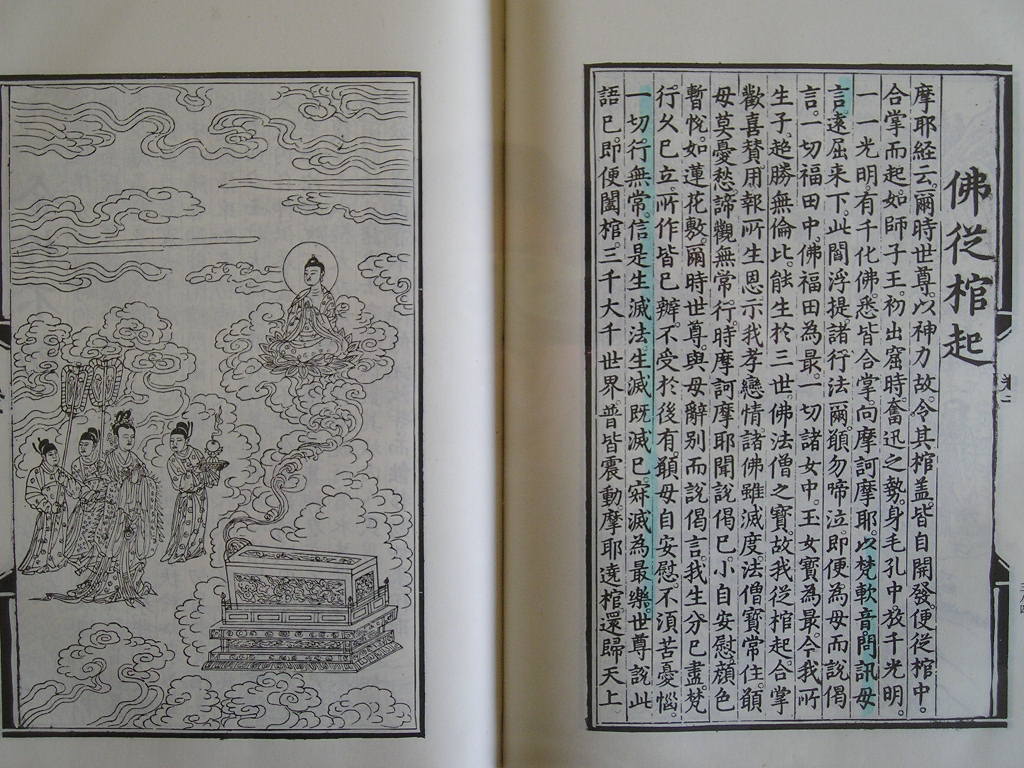 佛從棺起
摩耶経云。爾時世尊。以神力故。令其棺盖。皆自開發。便從棺中。
合掌而起。如師子王。初出窟時。奮迅之勢。身毛孔中。放千光明。
一一光明。有千化佛。悉皆合掌。向摩訶摩耶。以梵軟音。問訊母
言。遠屈来下。此間浮提。諸行法爾。願勿啼泣。即便為母。而說偈
言。一切福田中。佛福田為最。一切諸女中。玉女寶為最。今我所
生子。超勝無倫比。能生於三世。佛法僧之寶。故我從棺起。合掌
歡喜賛。用報所生恩。示我孝戀情。諸佛雖滅度。法僧寶常住。願
母莫憂愁。諦觀無常行。時摩訶摩耶。聞說偈已。小自安慰。顔色
暫悅。如蓮花敷。爾時世尊。與母辭别。而說偈言。我生分已盡。梵
行久已立。所作皆已辦。不受於後有。願母自安慰。不須苦憂惱。
一切行無常。信是生滅法。生滅既滅已。寂滅為最樂。世尊說此
語已。即便闔棺。三千大千世界。普皆震動。摩耶遶棺。還歸天上